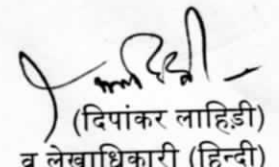 (दिपांकर लाहिड़ी)
व लेखाधिकारी (हिन्दी)